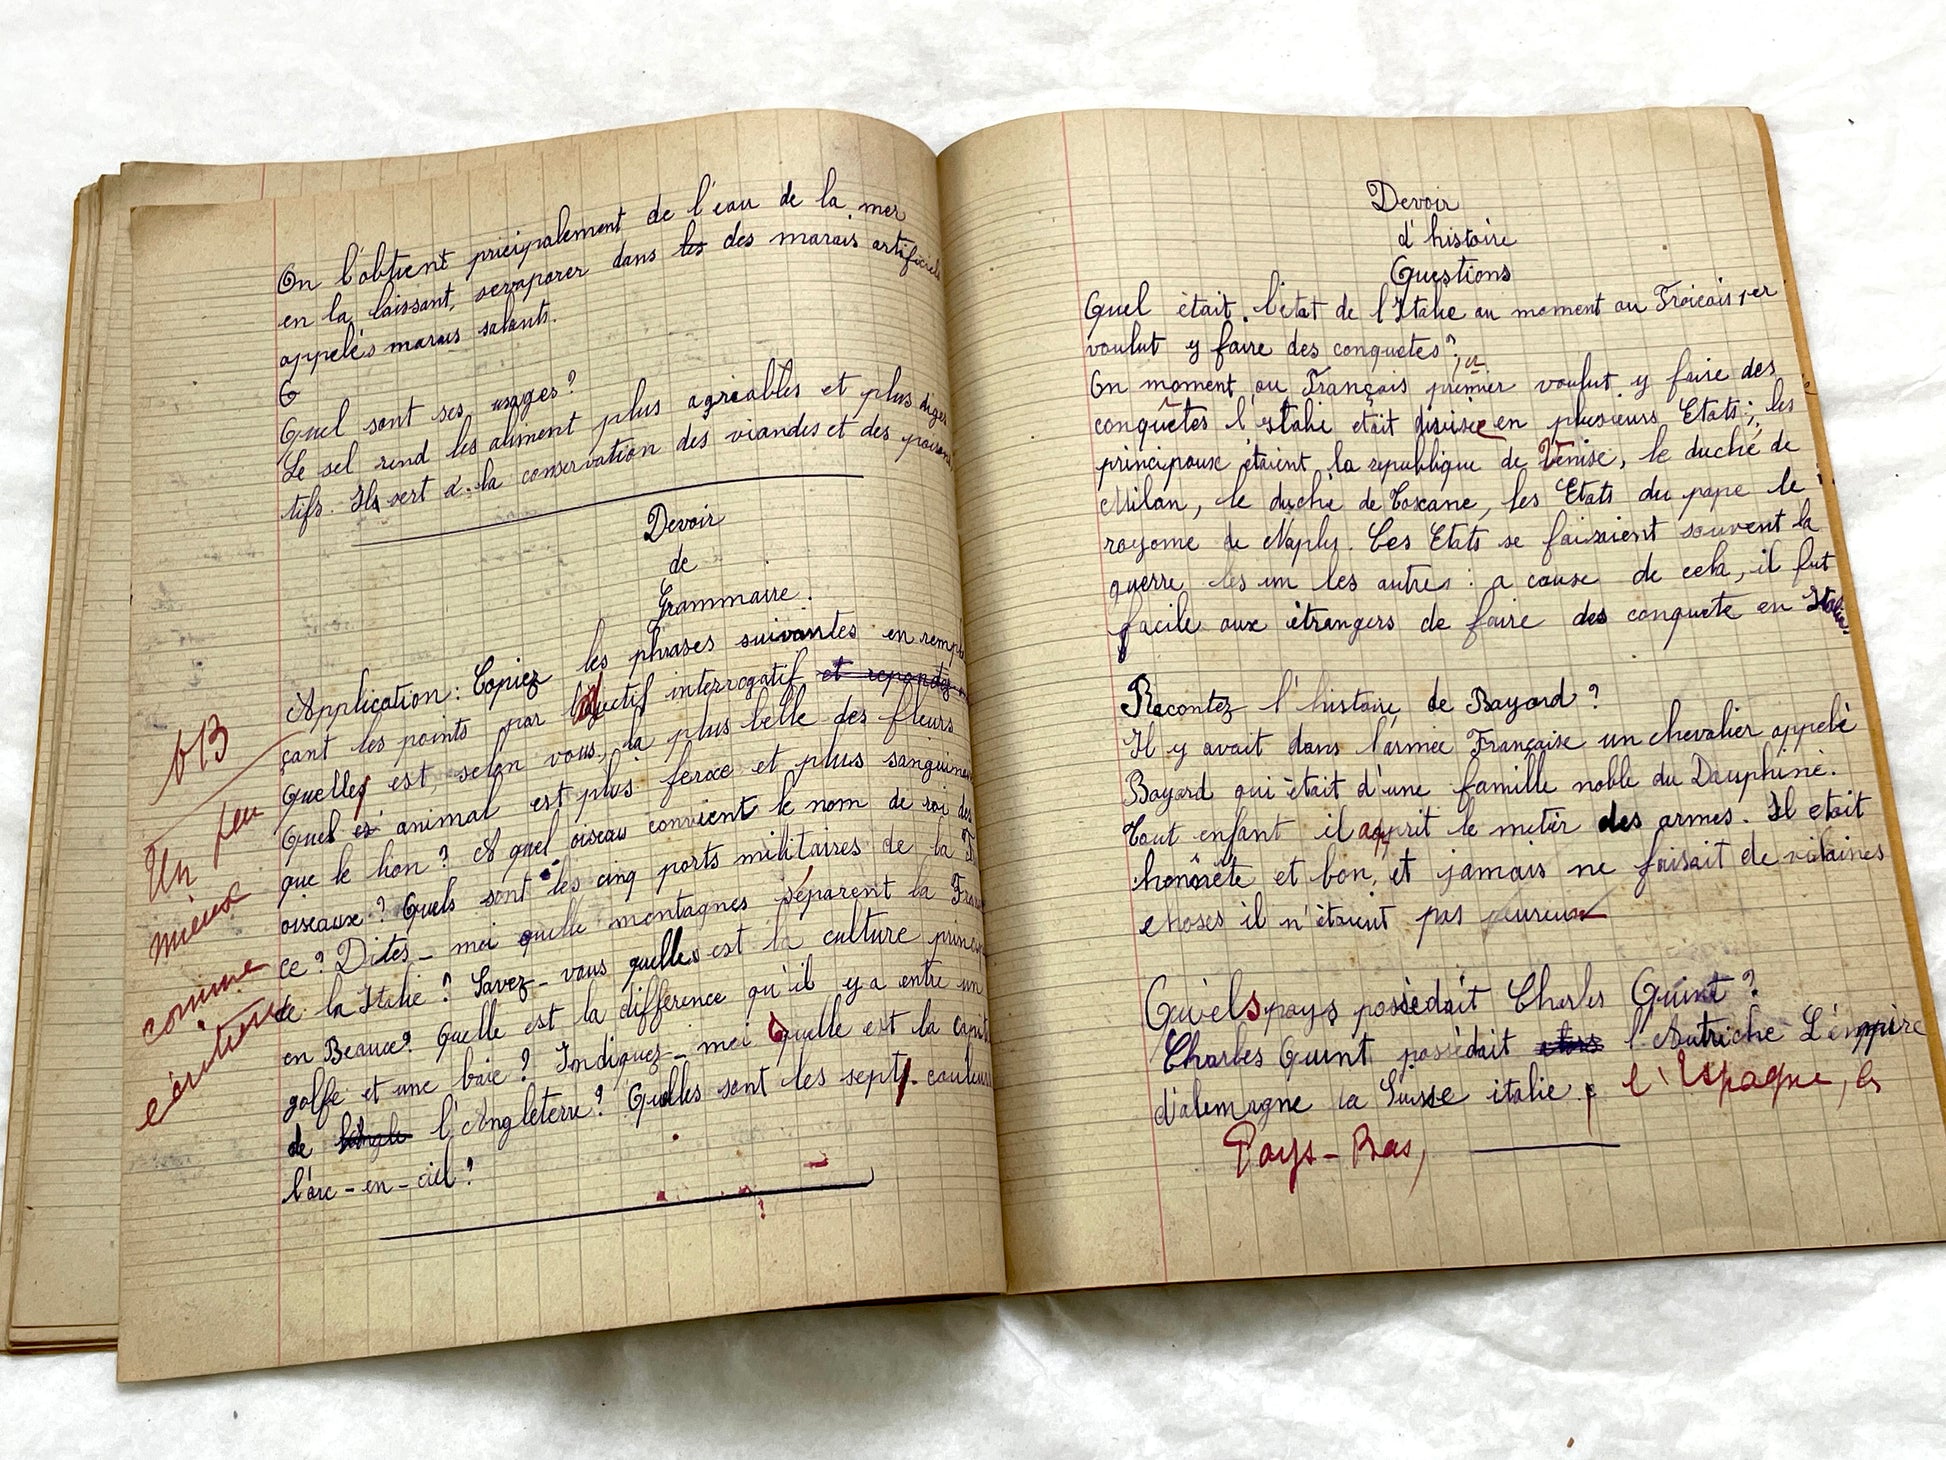 On l'obtient pricipalement de l'eau de la mer
en la laissant, sevaporer dans les des marais artificiels
appelés marais salants.
Quel sont ses usages?
Le sel rend les aliment plus agréables et plus diges
tifs. Ils sert à la conservation des viandes et des poissons
Devoir
de
Grammaire.
Application: Copiez les phrases suivantes en rempla
çant les points par l'adjectif interrogatif et repondez
Quelles est, selon vous, la plus belle des fleurs
Quel animal est plus feroce et plus sanguinaire
que le lion? A quel oiseau convient le nom de roi des
oiseaux? Quels sont les cinq ports militaires de la Fran
ce? Dites-moi quelle montagnes séparent la France
de la Italie? Savez-vous quelles est la culture princi
en Beauce? Quelle est la différence qu'il y a entre un
golfe et une baie? Indiquez-moi quelle est la capit
de l'Angleterre? Quelles sont les sept couleurs
l'arc-en-ciel?
Un peu
mieux
comme
écriture
Devoir
d'histoire
Questions
Quel était l'état de l'Italie au moment ou Froicois 1er
voulut y faire des conquetes?
On moment ou Français premier voulut y faire des
conquêtes l'Italie etait divisée en plusieurs Etats; les
principaux étaient la republique de Venise, le duché de
Milan, le duché de Toscane, les Etats du pape le
royome de Naply. Ces Etats se faisaient souvent la
guerre les un les autres: a cause de cela, il fut
facile aux étrangers de faire des conquete en Italie.
Racontez l'histoire de Bayard?
Il y avait dans l'armée Française un chevalier appelé
Bayard qui était d'une famille noble du Dauphiné.
Tout enfant il apprit le metier des armes. Il etait
honnête et bon, et jamais ne faisait de vilaines
choses il n'étaient pas peureux
Quels pays possédait Charles Quint?
Charles Quint possédait l'Autriche L'émpire
d'alemagne la Suisse italie l'Espagne, les
Pays-Bas,